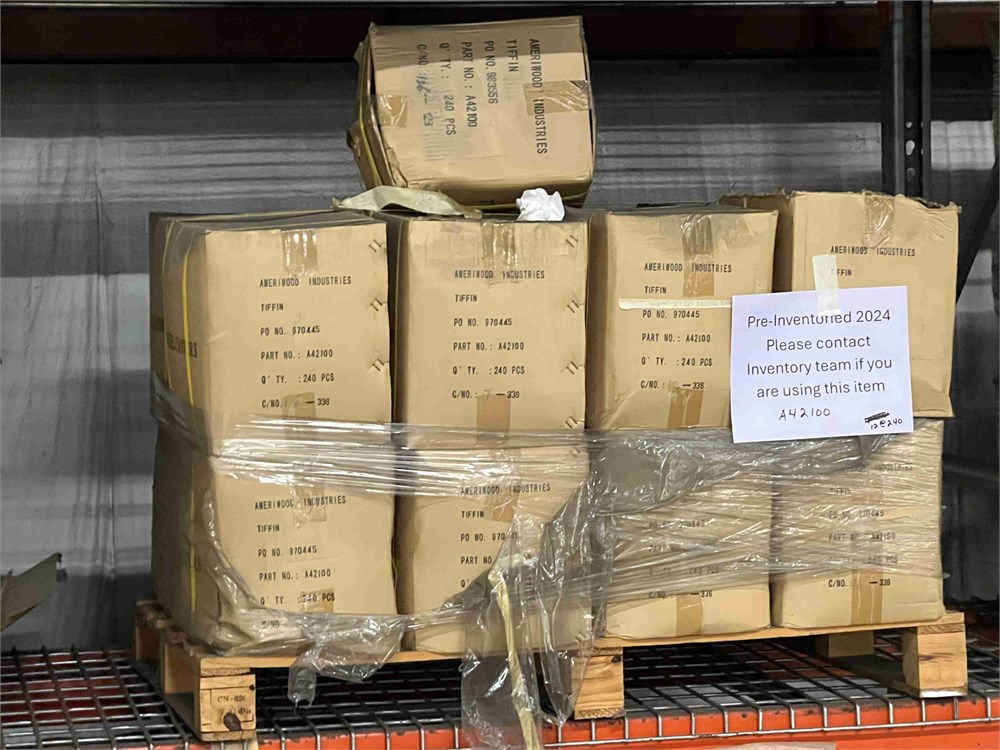 AMERIWOOD INDUSTRIES
TIFFIN
PO NO. 983556
PART NO.: A42100
Q' TY.: 240 PCS
C/NO.: 126-123
AMERIWOOD INDUSTRIES
TIFFIN
PO NO. 970445
PART NO.: A42100
Q' TY. :240 PCS
C/NO.: -336
AMERIWOOD INDUSTRIES
TIFFIN
PO NO. 970445
PART NO.: A42100
Q' TY. :240 PCS
C/NO.: -336
AMERIWOOD INDUSTRIES
TIFFIN
PO NO. 970445
PART NO.: A42100
Q' TY. :240 PCS
C/NO.: -336
AMERIWOOD INDUSTRIES
TIFFIN
Pre-Inventoried 2024
Please contact
Inventory team if you
are using this item
A42100
12@240
AMERIWOOD INDUSTRIES
TIFFIN
PO NO. 970445
PART NO.: A42100
Q' TY. :240 PCS
C/NO. -336
AMERIWOOD INDUSTRIES
TIFFIN
PO NO. 970
PART NO.: A42100
Q'
C/NO.
PO NO. 970445
PART NO.: A42100
240 PCS
C/NO.: -336
INDUSTRIES
PO NO. 970445
PART NO. A42100
240 PCS
C/NO. -336